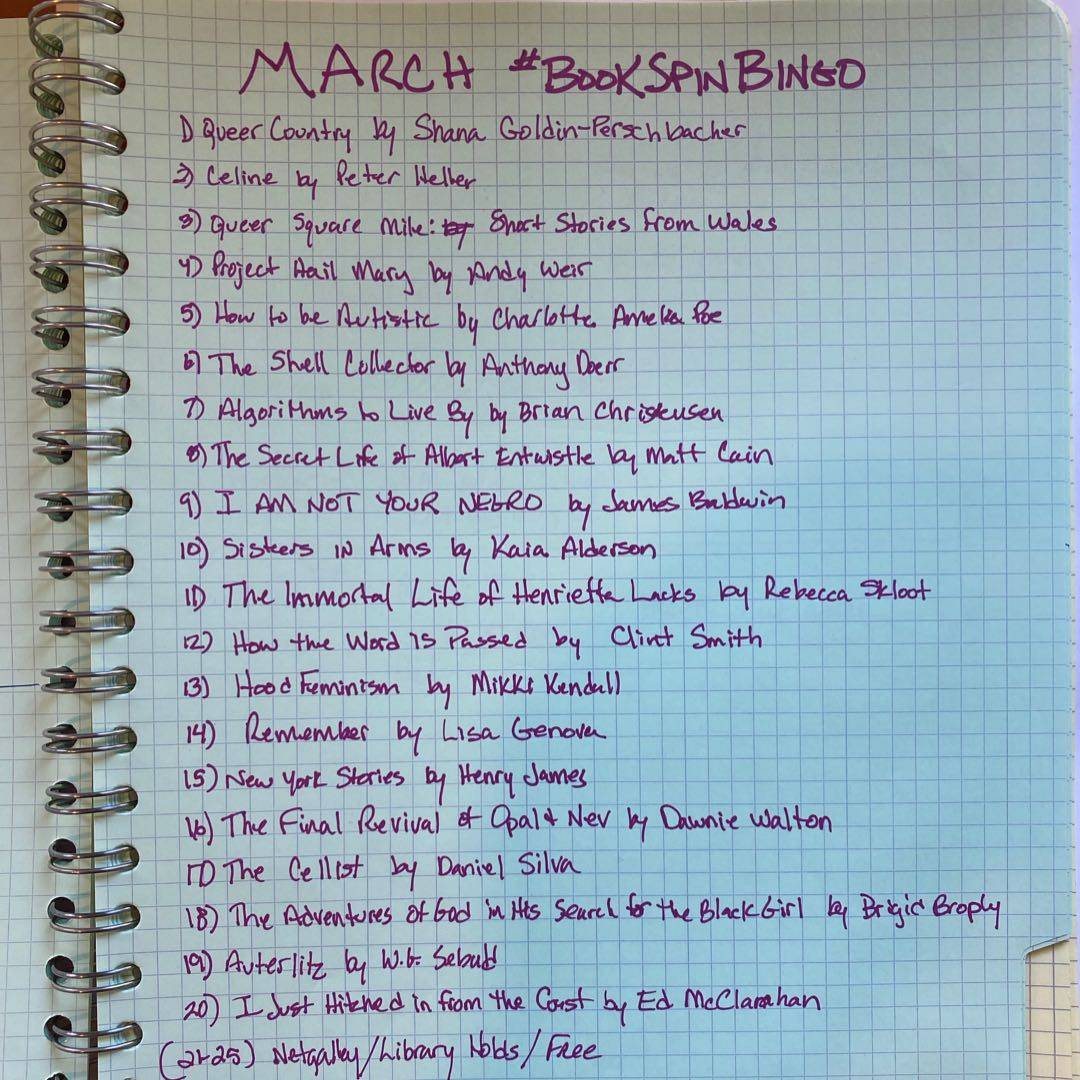 MARCH #BOOKSPINBINGO
1) Queer Country by Shana Goldin-Perschbacher
2) Celine by Peter Heller
3) Queer Square Mile: Short Stories from Wales
4) Project Hail Mary by Andy Weir
5) How to be Autistic by Charlotte Amelia Poe
6) The Shell Collector by Anthony Doerr
7) Algorithms to Live By by Brian Christensen
8) The Secret Life of Albert Entwistle by Matt Cain
9) I AM NOT YOUR NEGRO by James Baldwin
10) Sisters IN Arms by Kaia Alderson
11) The Immortal Life of Henrietta Lacks by Rebecca Skloot
12) How the Word Is Passed by Clint Smith
13) Hood Feminism by Mikki Kendall
14) Remember by Lisa Genova
15) New York Stories by Henry James
16) The Final Revival of Opal & Nev by Dawnie Walton
17) The Cellist by Daniel Silva
18) The Adventures of God in His Search for the Black Girl by Brigid Brophy
19) Auterlitz by W.G. Sebald
20) I Just Hitched in from the Coast by Ed McClanahan
(21-25) Netgalley/Library Holds/Free